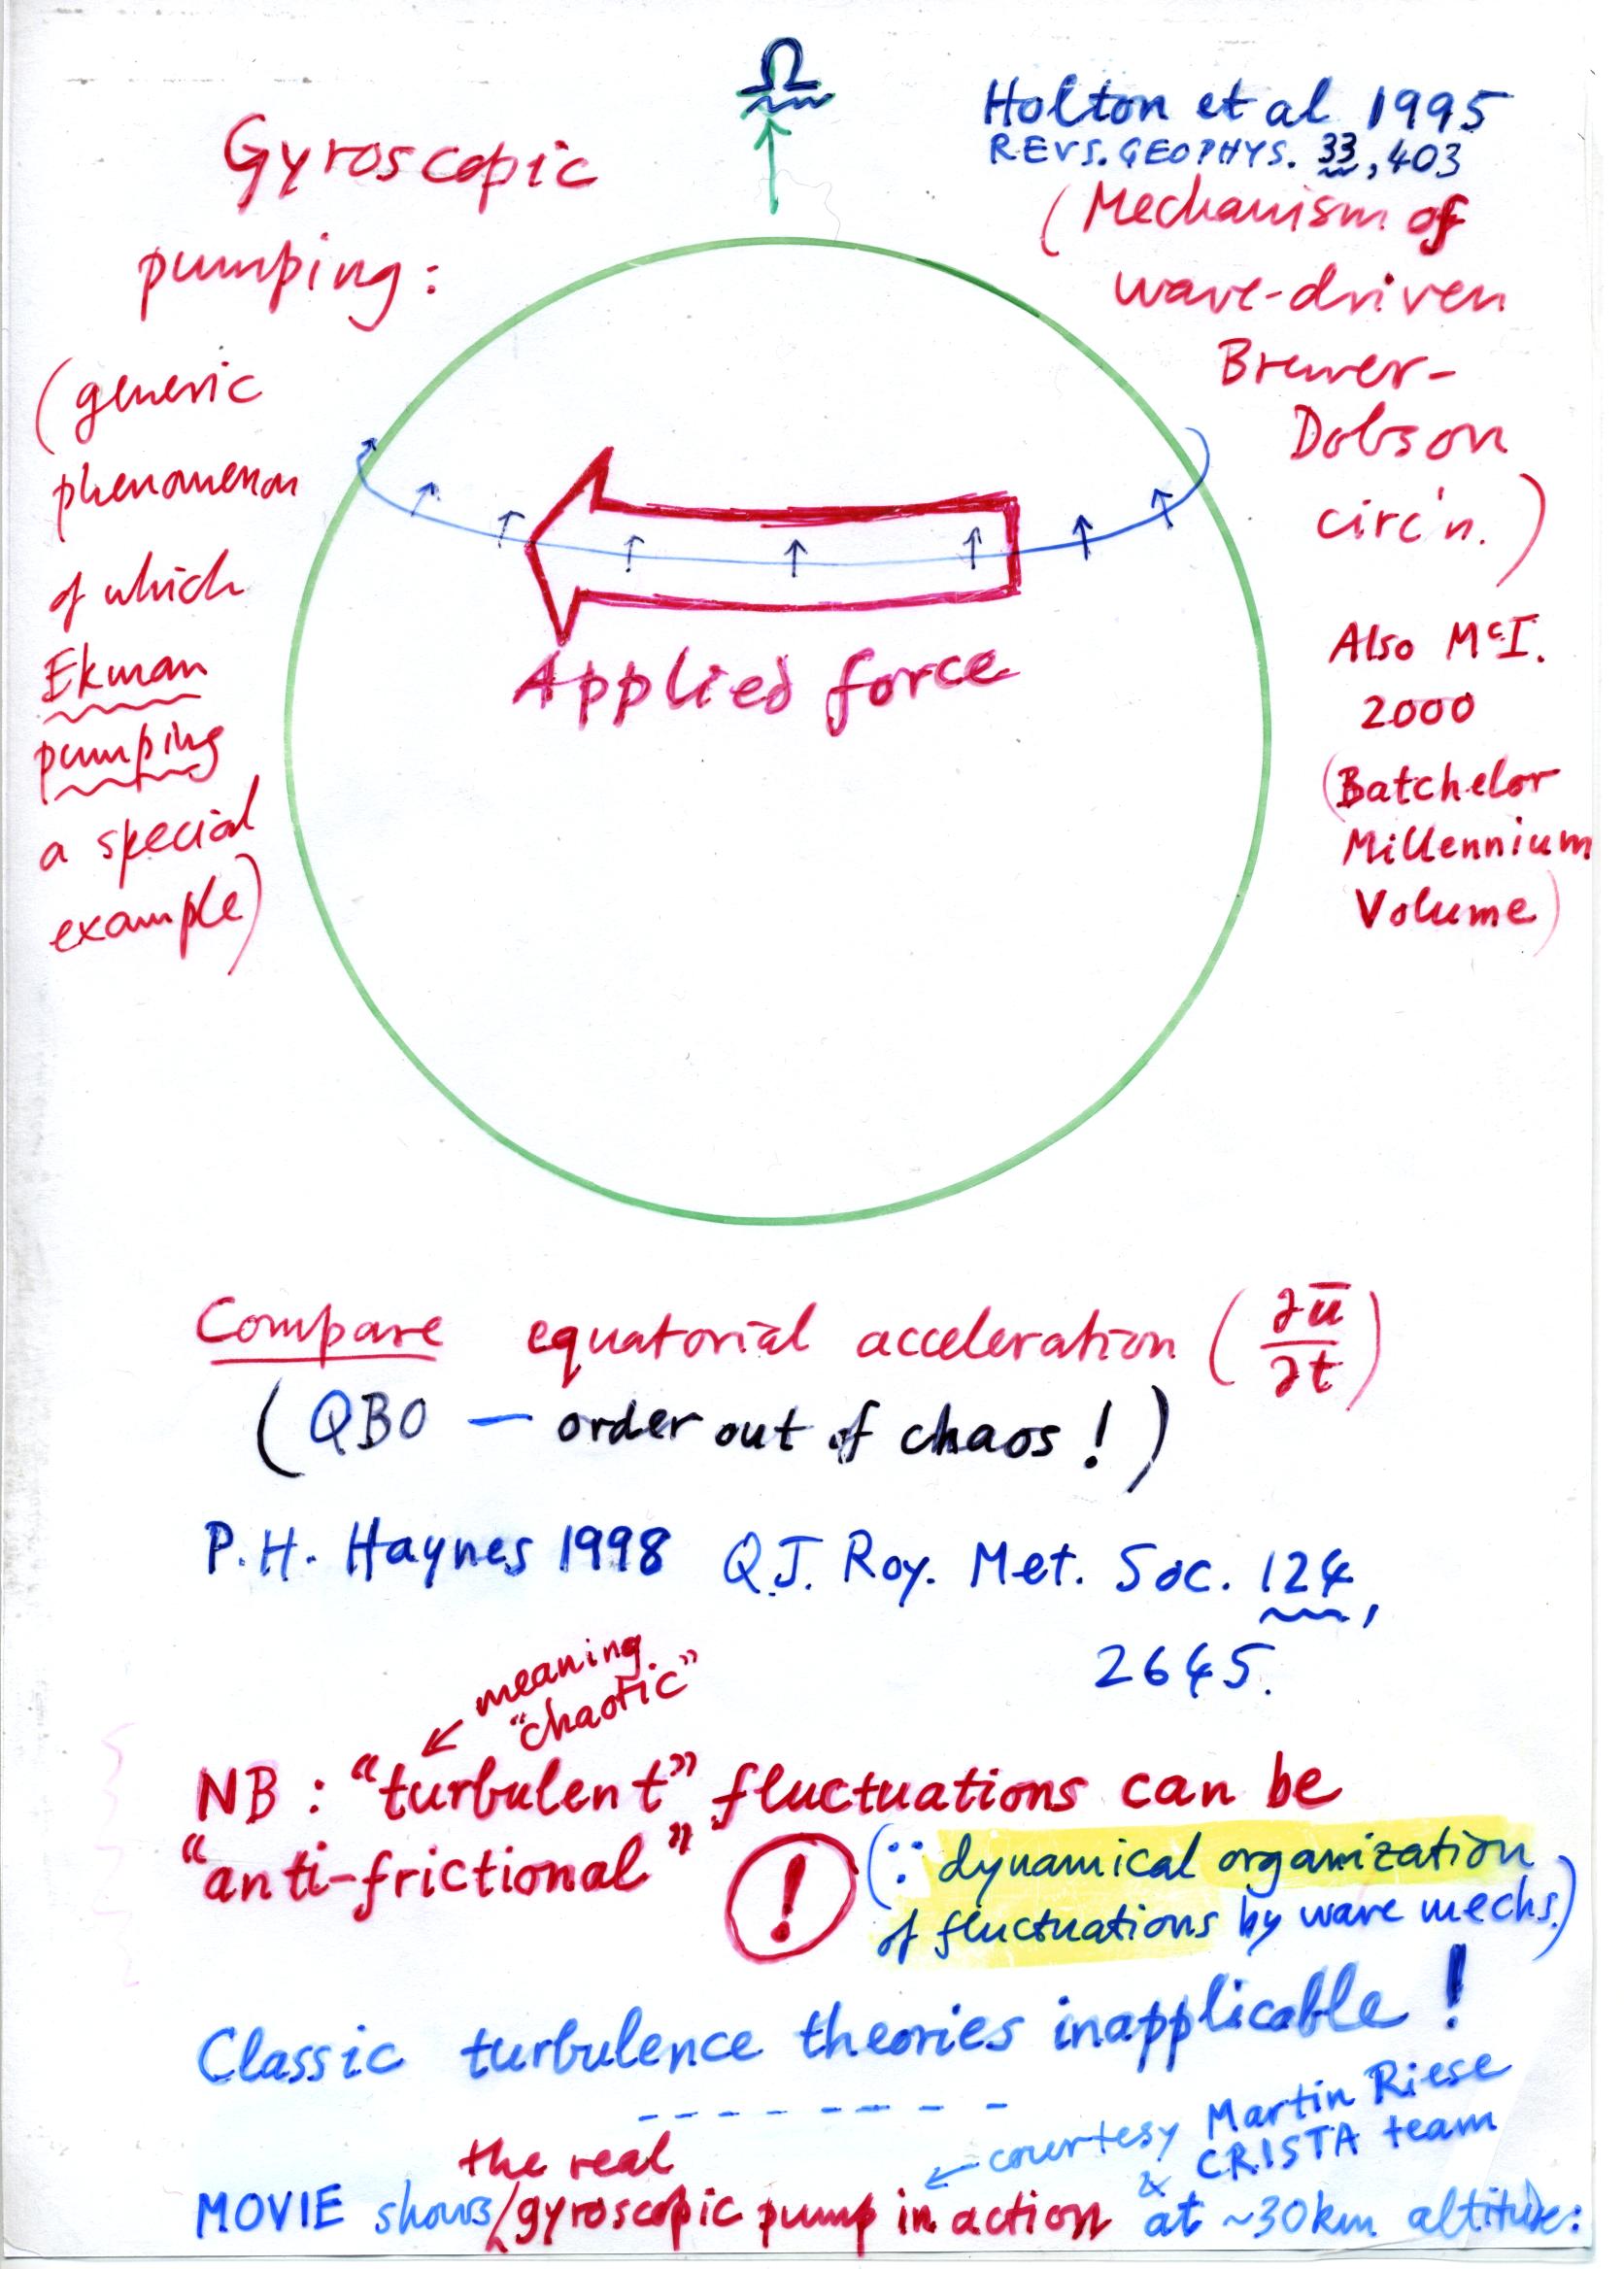 Ω
Gyroscopic
pumping:
(generic
phenomenon
of which
Ekman
pumping
a special
example)
Holton et al 1995
REVS. GEOPHYS. 33, 403
(Mechanism of
wave-driven
Brewer-
Dobson
circ'n.)
Also McI.
2000
(Batchelor
Millennium
Volume)
Applied force
Compare equatorial acceleration (∂ū/∂t)
(QBO — order out of chaos!)
P.H. Haynes 1998 Q.J. Roy. Met. Soc. 124,
2645.
meaning
"chaotic"
NB: "turbulent" fluctuations can be
"anti-frictional" ! (∵ dynamical organization
of fluctuations by wave mechs.)
Classic turbulence theories inapplicable!
courtesy Martin Riese
& CRISTA team
the real
MOVIE shows/gyroscopic pump in action at ~30km altitude: